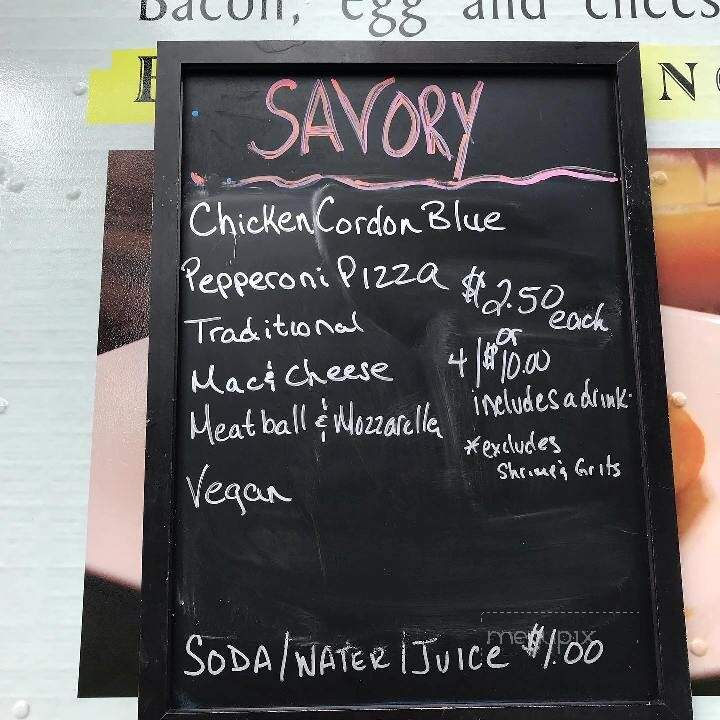 Bacon, egg and chees
SAVORY
Chicken Cordon Blue
Pepperoni Pizza
Traditional
Mac & Cheese
Meatball & Mozzarella
Vegan
$2.50 each
or
4/$10.00
includes a drink
*excludes
Shrimp & Grits
menupix
SODA/WATER/JUICE $1.00